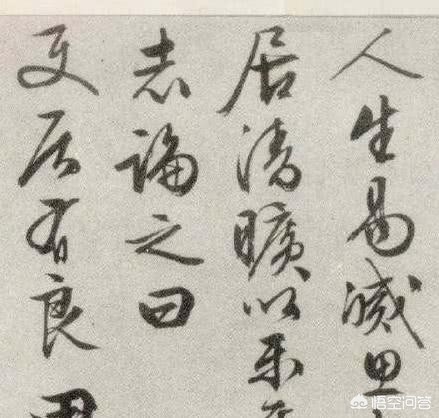 人生易滅
居清曠以樂
志論之曰
居有良田
悟空问答